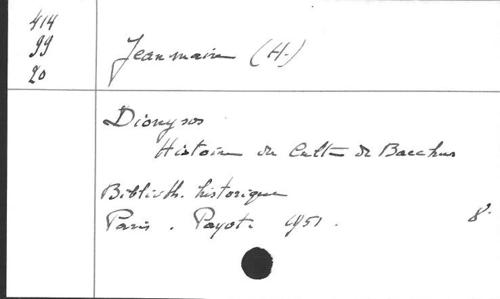 414
99
20
Jeanmaire (H.)
Dionysos
Histoire du Culte de Bacchus
Biblioth. historique
Paris. Payot. 1951. 8°